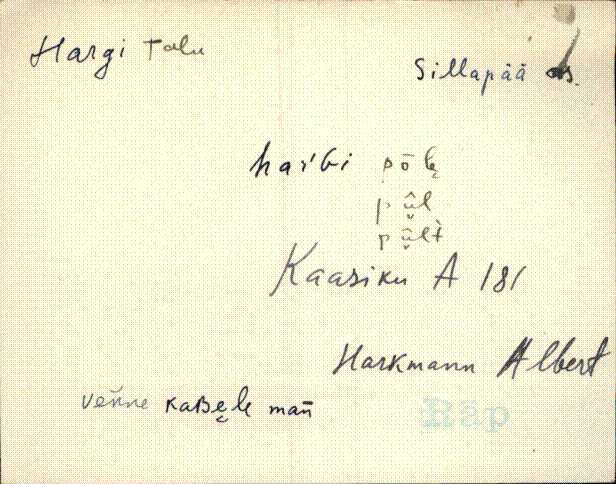 Hargi talu
Sillapää as.
har'Gi pōlɛ
pū̬l
pū̬lt
Kaasiku A 181
Harkmann Albert
veňne kaʙe̬lɛ mäň
Räp